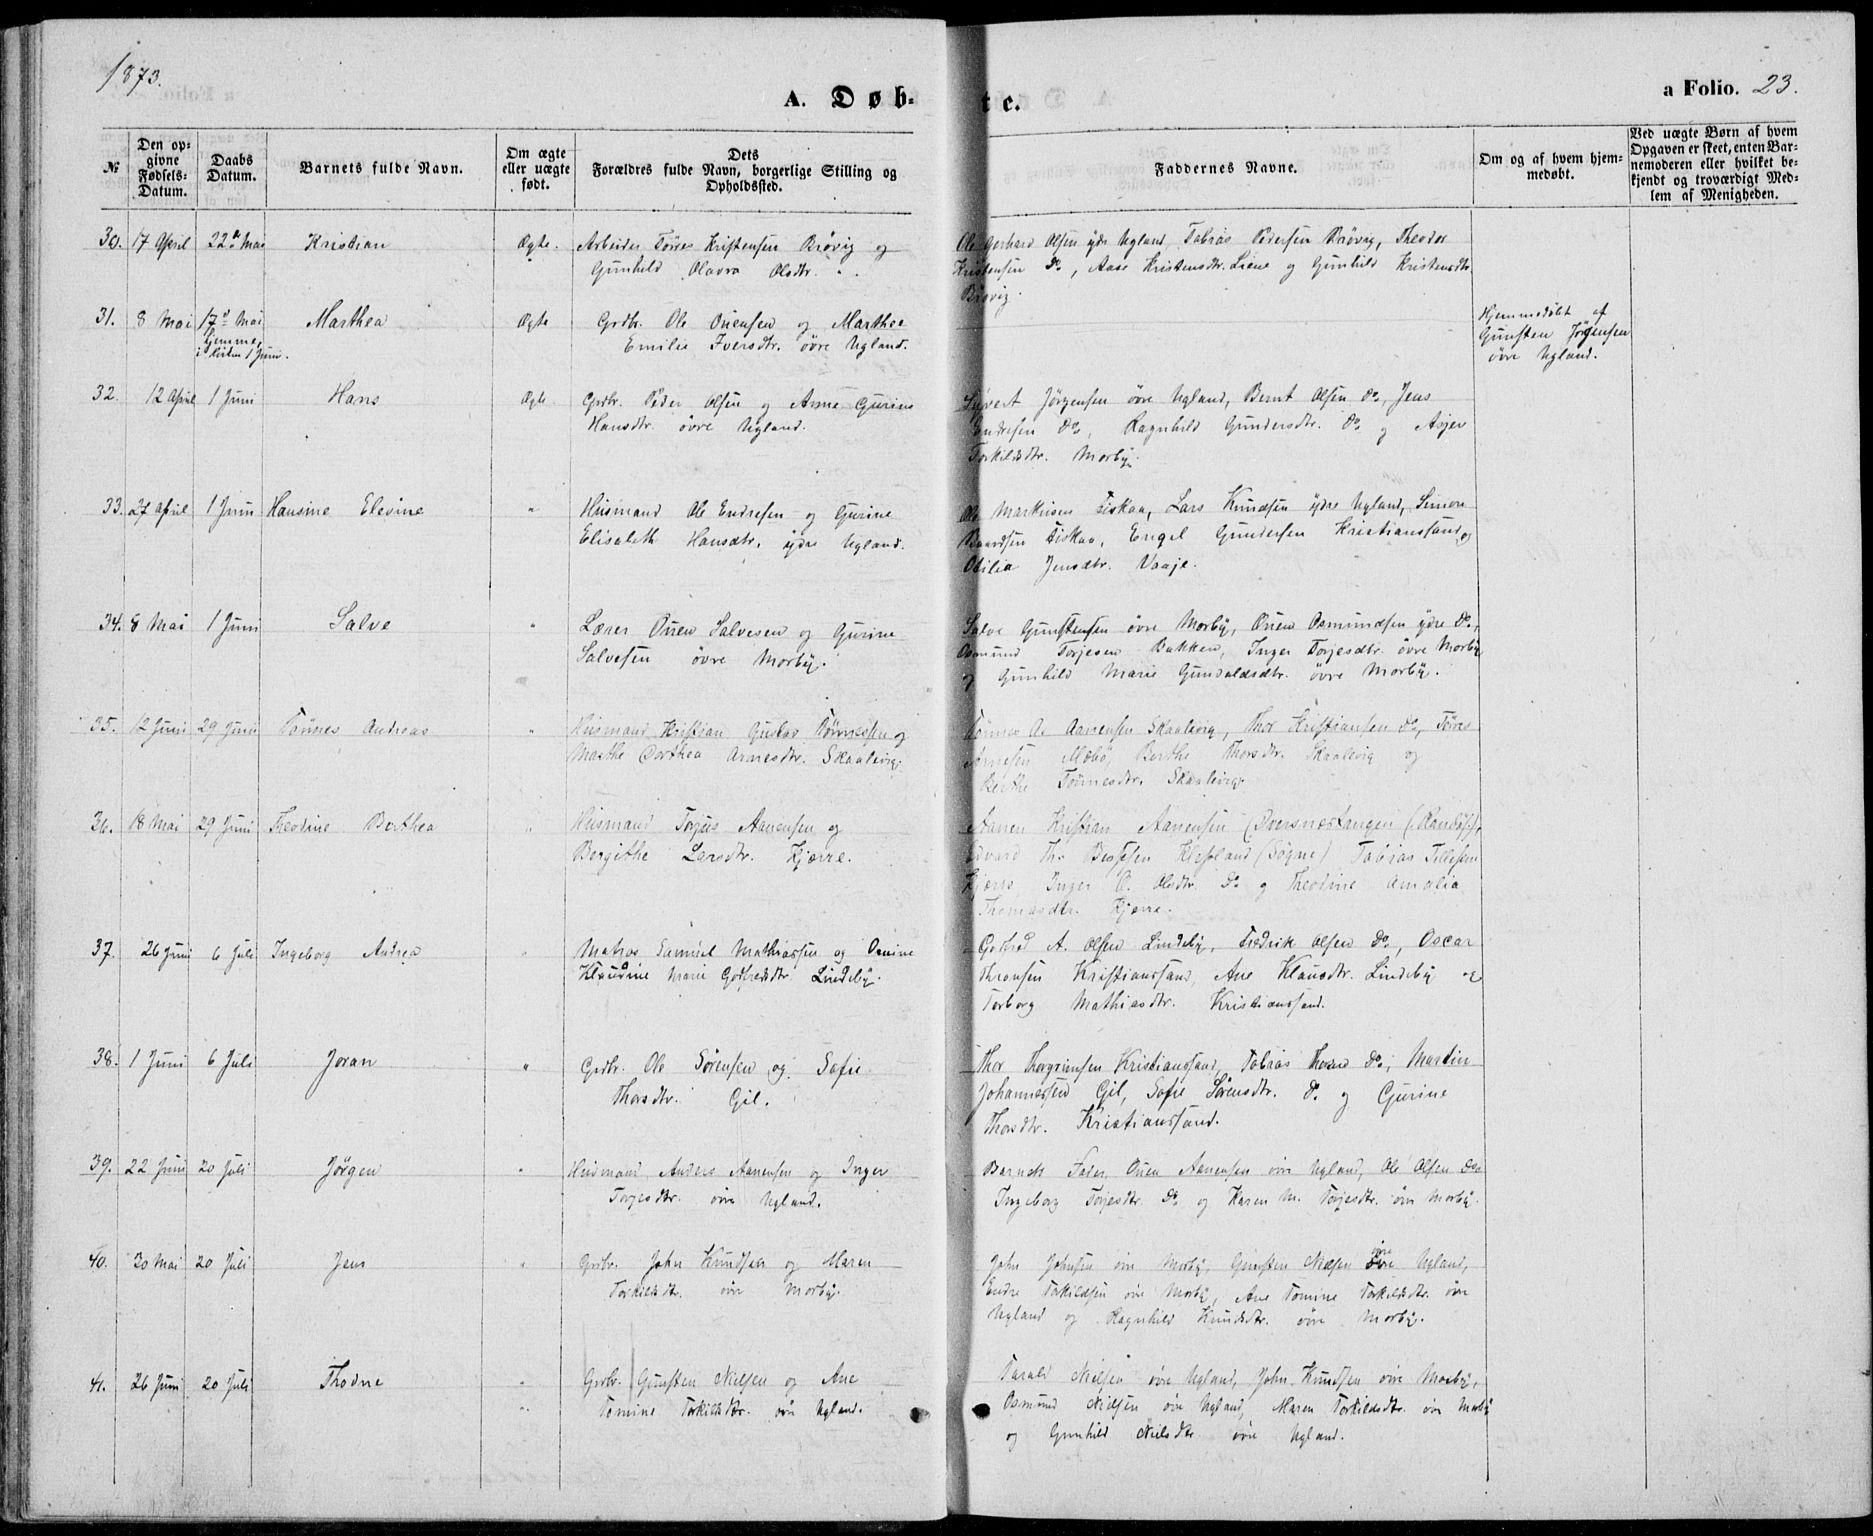 1873.
A. Døb-
te.
a Folio. 23.
№
Den op-
givne
Fødsels-
Datum.
Daabs
Datum.
Barnets fulde Navn.
Om ægte
eller uægte
født.
Dets
Forældres fulde Navn, borgerlige Stilling og
Opholdssted.
Faddernes Navne.
Om og af hvem hjem-
medøbt.
Ved uægte Børn af hvem
Opgaven er skeet, enten Bar-
nemoderen eller hvilket be-
kjendt og troværdigt Med-
lem af Menigheden.
30. 17 April 22de Mai Kristian Ægte. Arbeider Törres Kristensen Brövig og
Gunhild Olavra Olsdtr. "
Ole Gerhard Olsen ydre Ugland, Tobias Pedersen Brövig, Theodor
Kristensen Do, Aase Kristensdtr. Liene og Gunhild Kristensdtr.
Brövig.
31. 8 Mai 17de Mai Marthea Ægte Grdbr. Ole Ouensen og Marthea
hjemme,
i kirken 1 Juni.
Emilie Iversdtr. övre Ugland.
Hjemmedöbt af
Gunsten Jörgensen
övre Ugland.
32. 12 April 1 Juni Hans Ægte. Grdbr. Peder Olsen og Anne Gurine
Hansdtr. övre Ugland.
Syvert Jörgensen övre Ugland, Bernt Olsen Do, Jens
Endresen Do, Ragnhild Gundersdtr. Do og Asjer
Torkildsdtr. Morby.
33. 27 April 1 Juni Hansine Elevine " Husmand Ole Endresen og Gurine
Elisabeth Hansdtr. ydre Ugland.
Ole Markusen Fiskaa, Lars Knudsen ydre Ugland, Simon
Baardsen Fiskaa, Engel Gundersen Kristianssand og
Otilia Jensdtr. Vaaje.
34. 8 Mai 1 Juni Salve " Lærer Ouen Salvesen og Gurine
Salvesen övre Morby.
Salve Gunstensen övre Morby, Ouen Osmundsen ydre Do,
Osmund Torjesen Bakken, Inger Torjesdtr. övre Morby
og Gunhild Marie Gundaldsdtr. övre Morby.
35. 12 Juni 29 Juni Tönnes Andreas " Husmand Kristian Gustav Tönnessen og
Marthe Dorthea Arnesdtr. Skaalevig.
Tönnes A. Aanensen Skaalevig, Thor Kristiansen Do, Törres
Arnesen Mebö, Berthe Thorsdtr. Skaalevig og
Berthe Tönnesdtr. Skaalevig.
36. 18 Mai 29 Juni Theodine Berthea " Husmand Torjus Aanensen og
Bergithe Larsdtr. Kjærre.
Aanen Kristian Aanensen Tversnestangen (Randös),
Edvard Th. Bessesen Klepland (Søgne) Tobias Tellefsen
Kjærre, Inger O. Olsdtr. Do og Theodine Amalia
Thomasdtr. Kjærre.
37. 26 Juni 6 Juli Ingeborg Andrea " Matros Samuel Mathiassen og Osmine
Klaudine Marie Gotfredsdtr. Lindeby.
Gotfred A. Olsen Lindeby, Fredrik Olsen Do, Oscar
Kristianssand, Ane Klausdtr. Lindeby og
Torborg Mathiasdtr. Kristianssand.
38. 1 Juni 6 Juli Joran " Grdbr. Ole Sörensen og Sofie
Thorsdtr. Gil.
Thor Thorgrimsen Kristianssand, Tobias Thorsen Do, Martin
Johannessen Gil, Sofie Sörensdtr. Do og Gurine
Thorsdtr. Kristianssand.
39. 22 Juni 20 Juli Jörgen " Husmand Anders Aanensen og Inger
Torjesdtr. övre Ugland.
Barnets Fader, Ouen Aanensen övre Ugland, Ole Olsen Do,
Ingeborg Torjesdtr. Do og Karen M. Torjesdtr. övre Morby.
40. 30 Mai 20 Juli Jens " Grdbr. John Knudsen og Maren
Torkildsdtr. övre Morby.
John Johnsen övre Morby, Gunsten Nielsen övre Ugland,
Endre Torkildsen övre Morby, Ane Tomine Torkildsdtr. övre
Ugland og Ragnhild Knudsdtr. övre Morby.
41. 26 Juni 20 Juli Thodne " Grdbr. Gunsten Nielsen og Ane
Tomine Torkildsdtr. övre Ugland.
Tarald Nielsen övre Ugland, John Knudsen övre Morby,
Osmund Nielsen övre Ugland, Maren Torkildsdtr. övre Morby
og Gunhild Nielsdtr. övre Ugland.